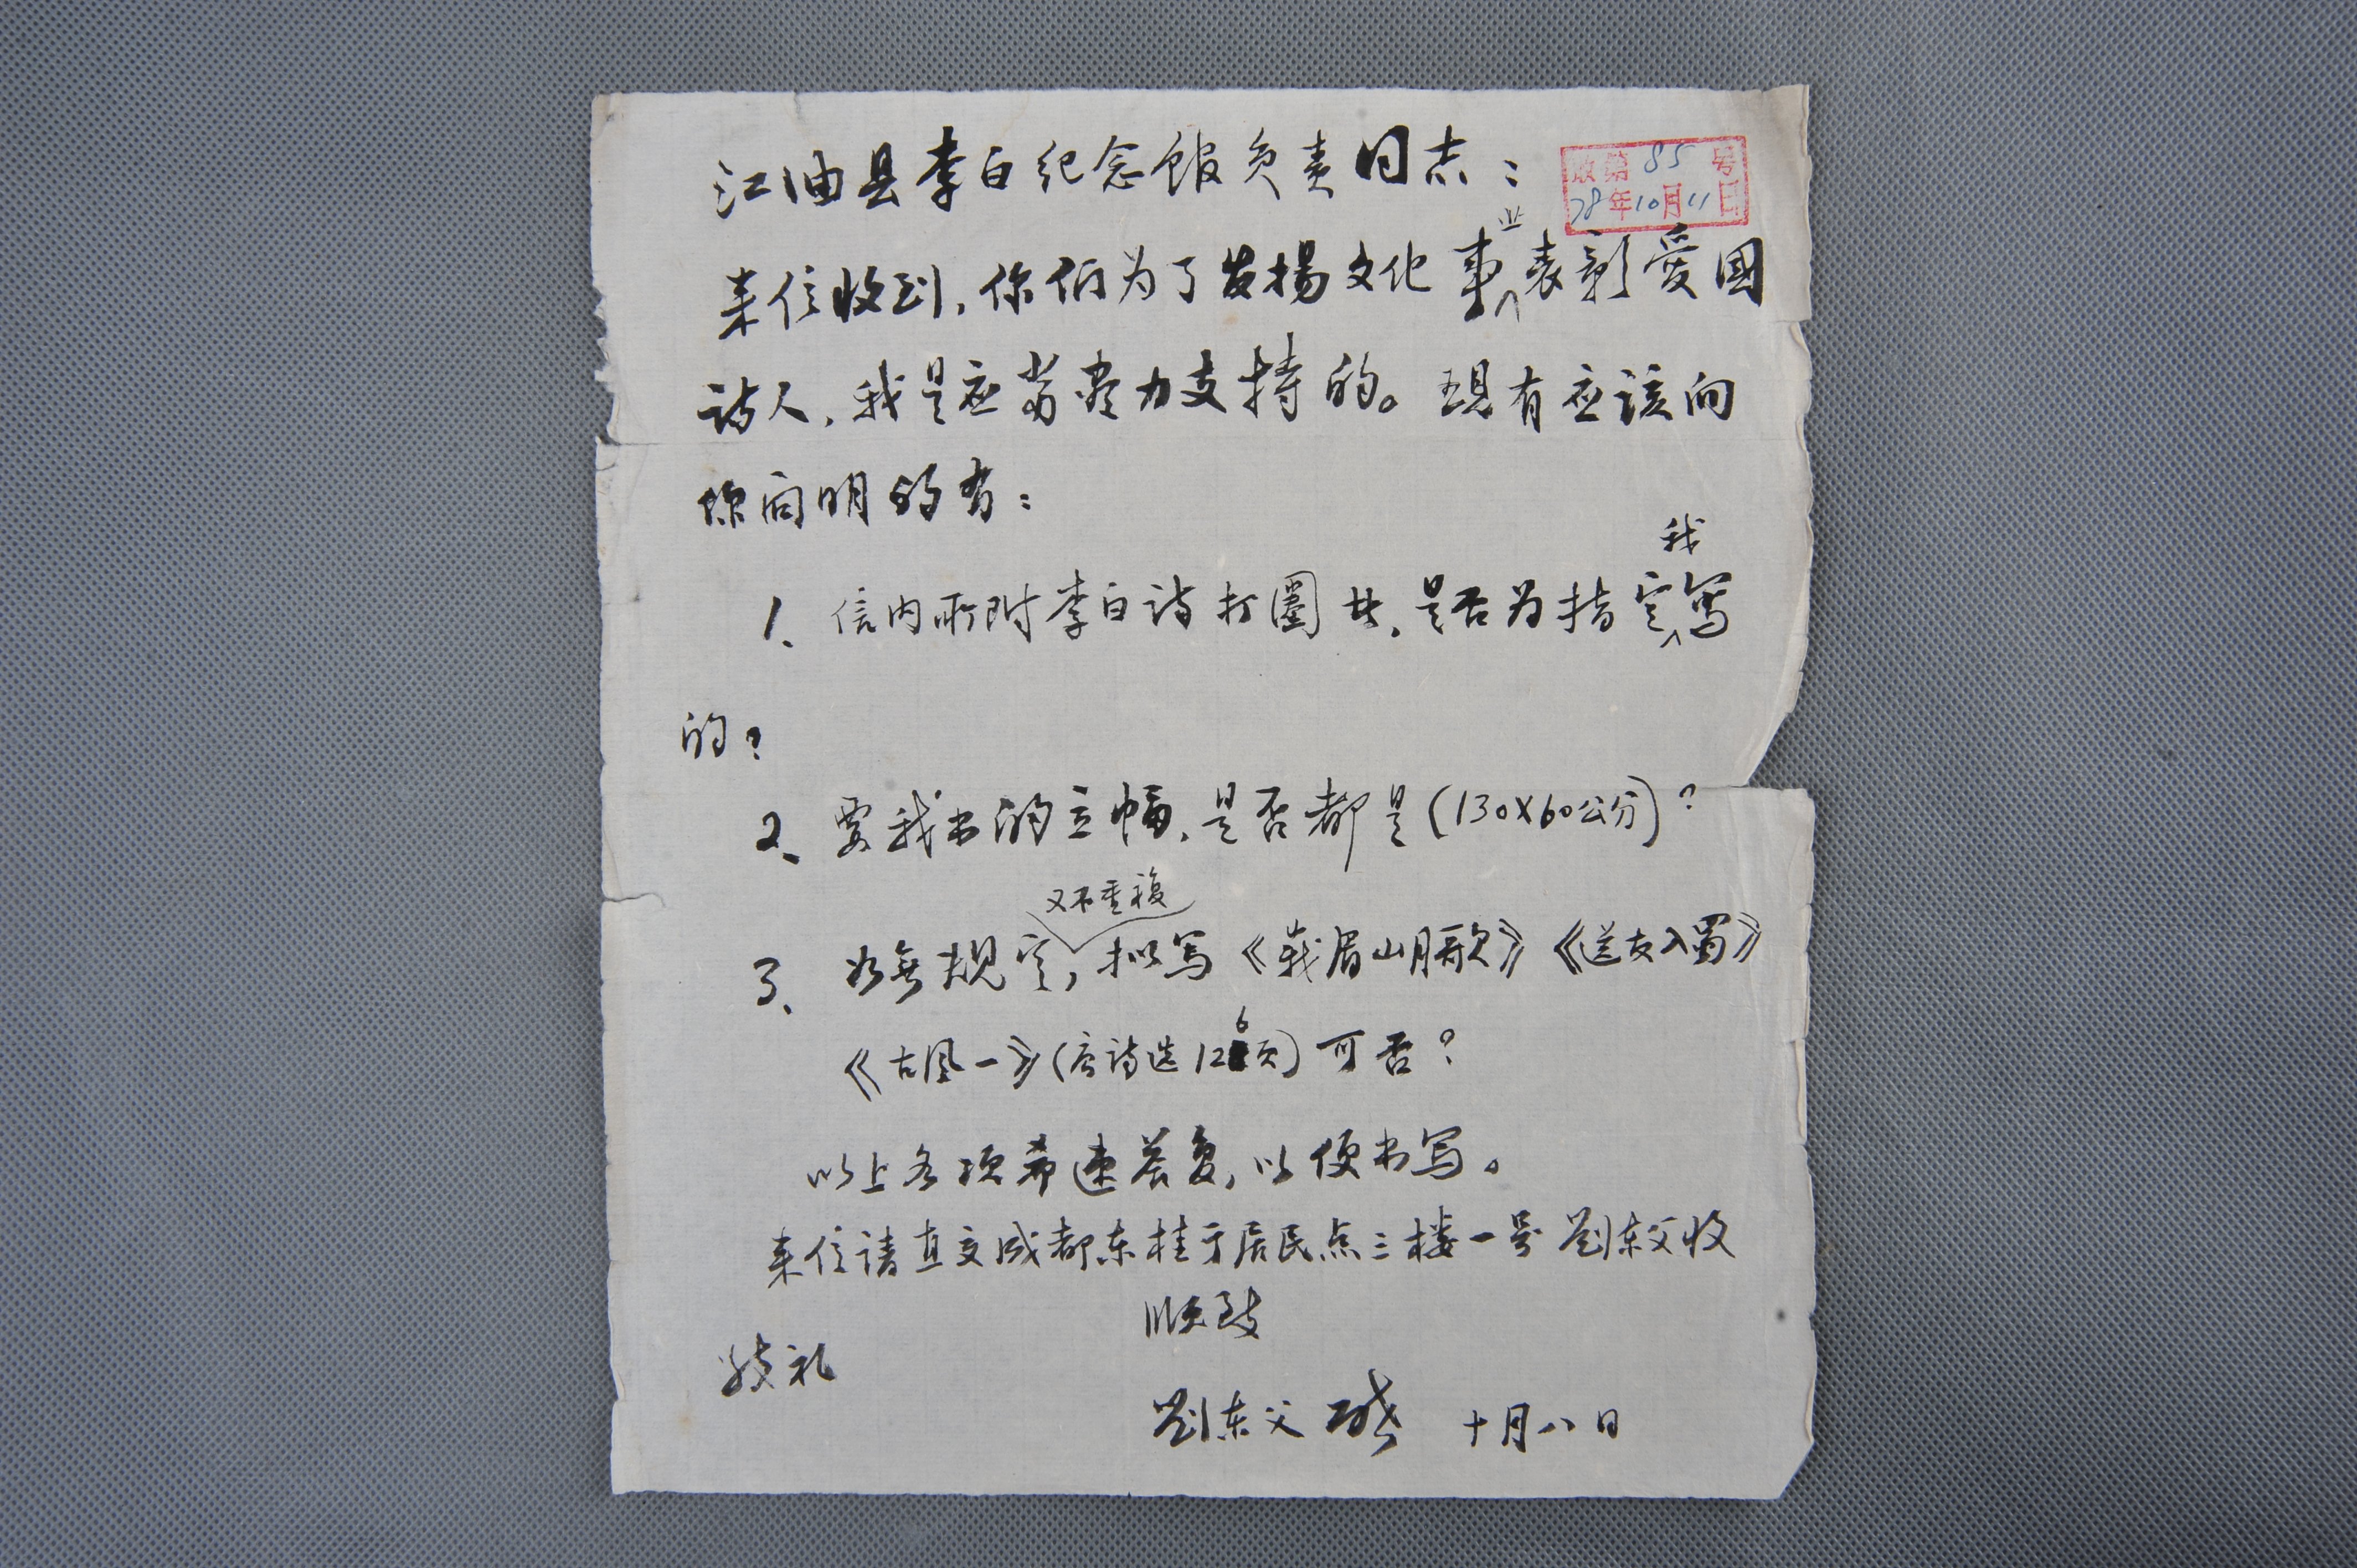 江油县李白纪念馆负责同志：
收第85号
78年10月11日
来信收到，你们为了发揚文化事业表彰爱國
诗人，我是应当尽力支持的。現有应该向
你问明的有：
1、信内所附李白诗打圈共，是否为指定我写
的？
2、要我书的立幅，是否都是(130X60公分)？
3、如無規定又不重複，拟写《峨眉山月歌》《送友入蜀》
《古風一》(唐诗选126页)可否？
以上各项希速答复，以便书写。
来信请直交成都东桂子居民点三楼一号劉东父收
順致
敬礼
劉东父啟 十月八日